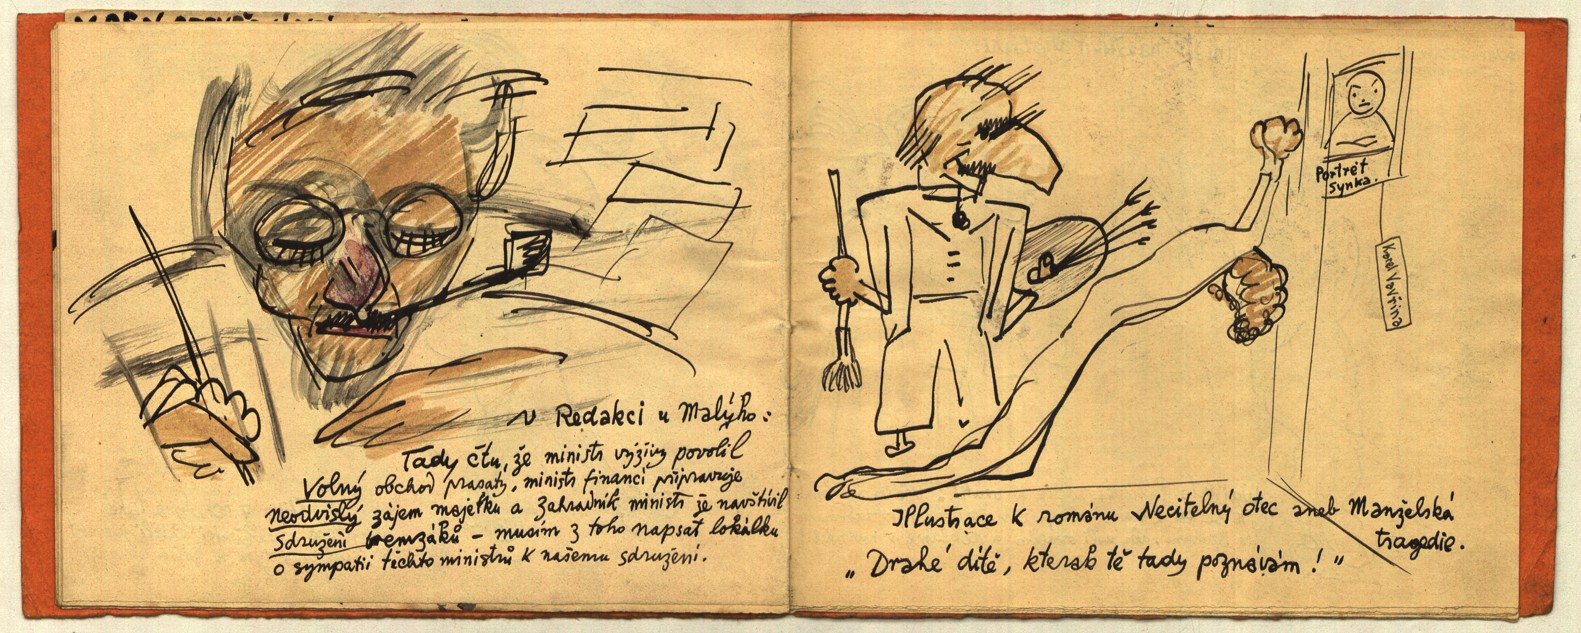 v Redakci u Malýho:
Tady čtu, že ministr výživy povolil
Volný obchod prasaty, ministr financí připravuje
neodvislý zájem majetku a Zahradník ministr je navštívil
Sdružení – musím z toho napsat lokálku
o sympatii těchto ministrů k našemu sdružení.
Portrét
Synka.
Karel Vavřina
Illustrace k románu Necitelný otec aneb Manželská
tragedie.
„Drahé dítě, kterak tě tady poznávám!"